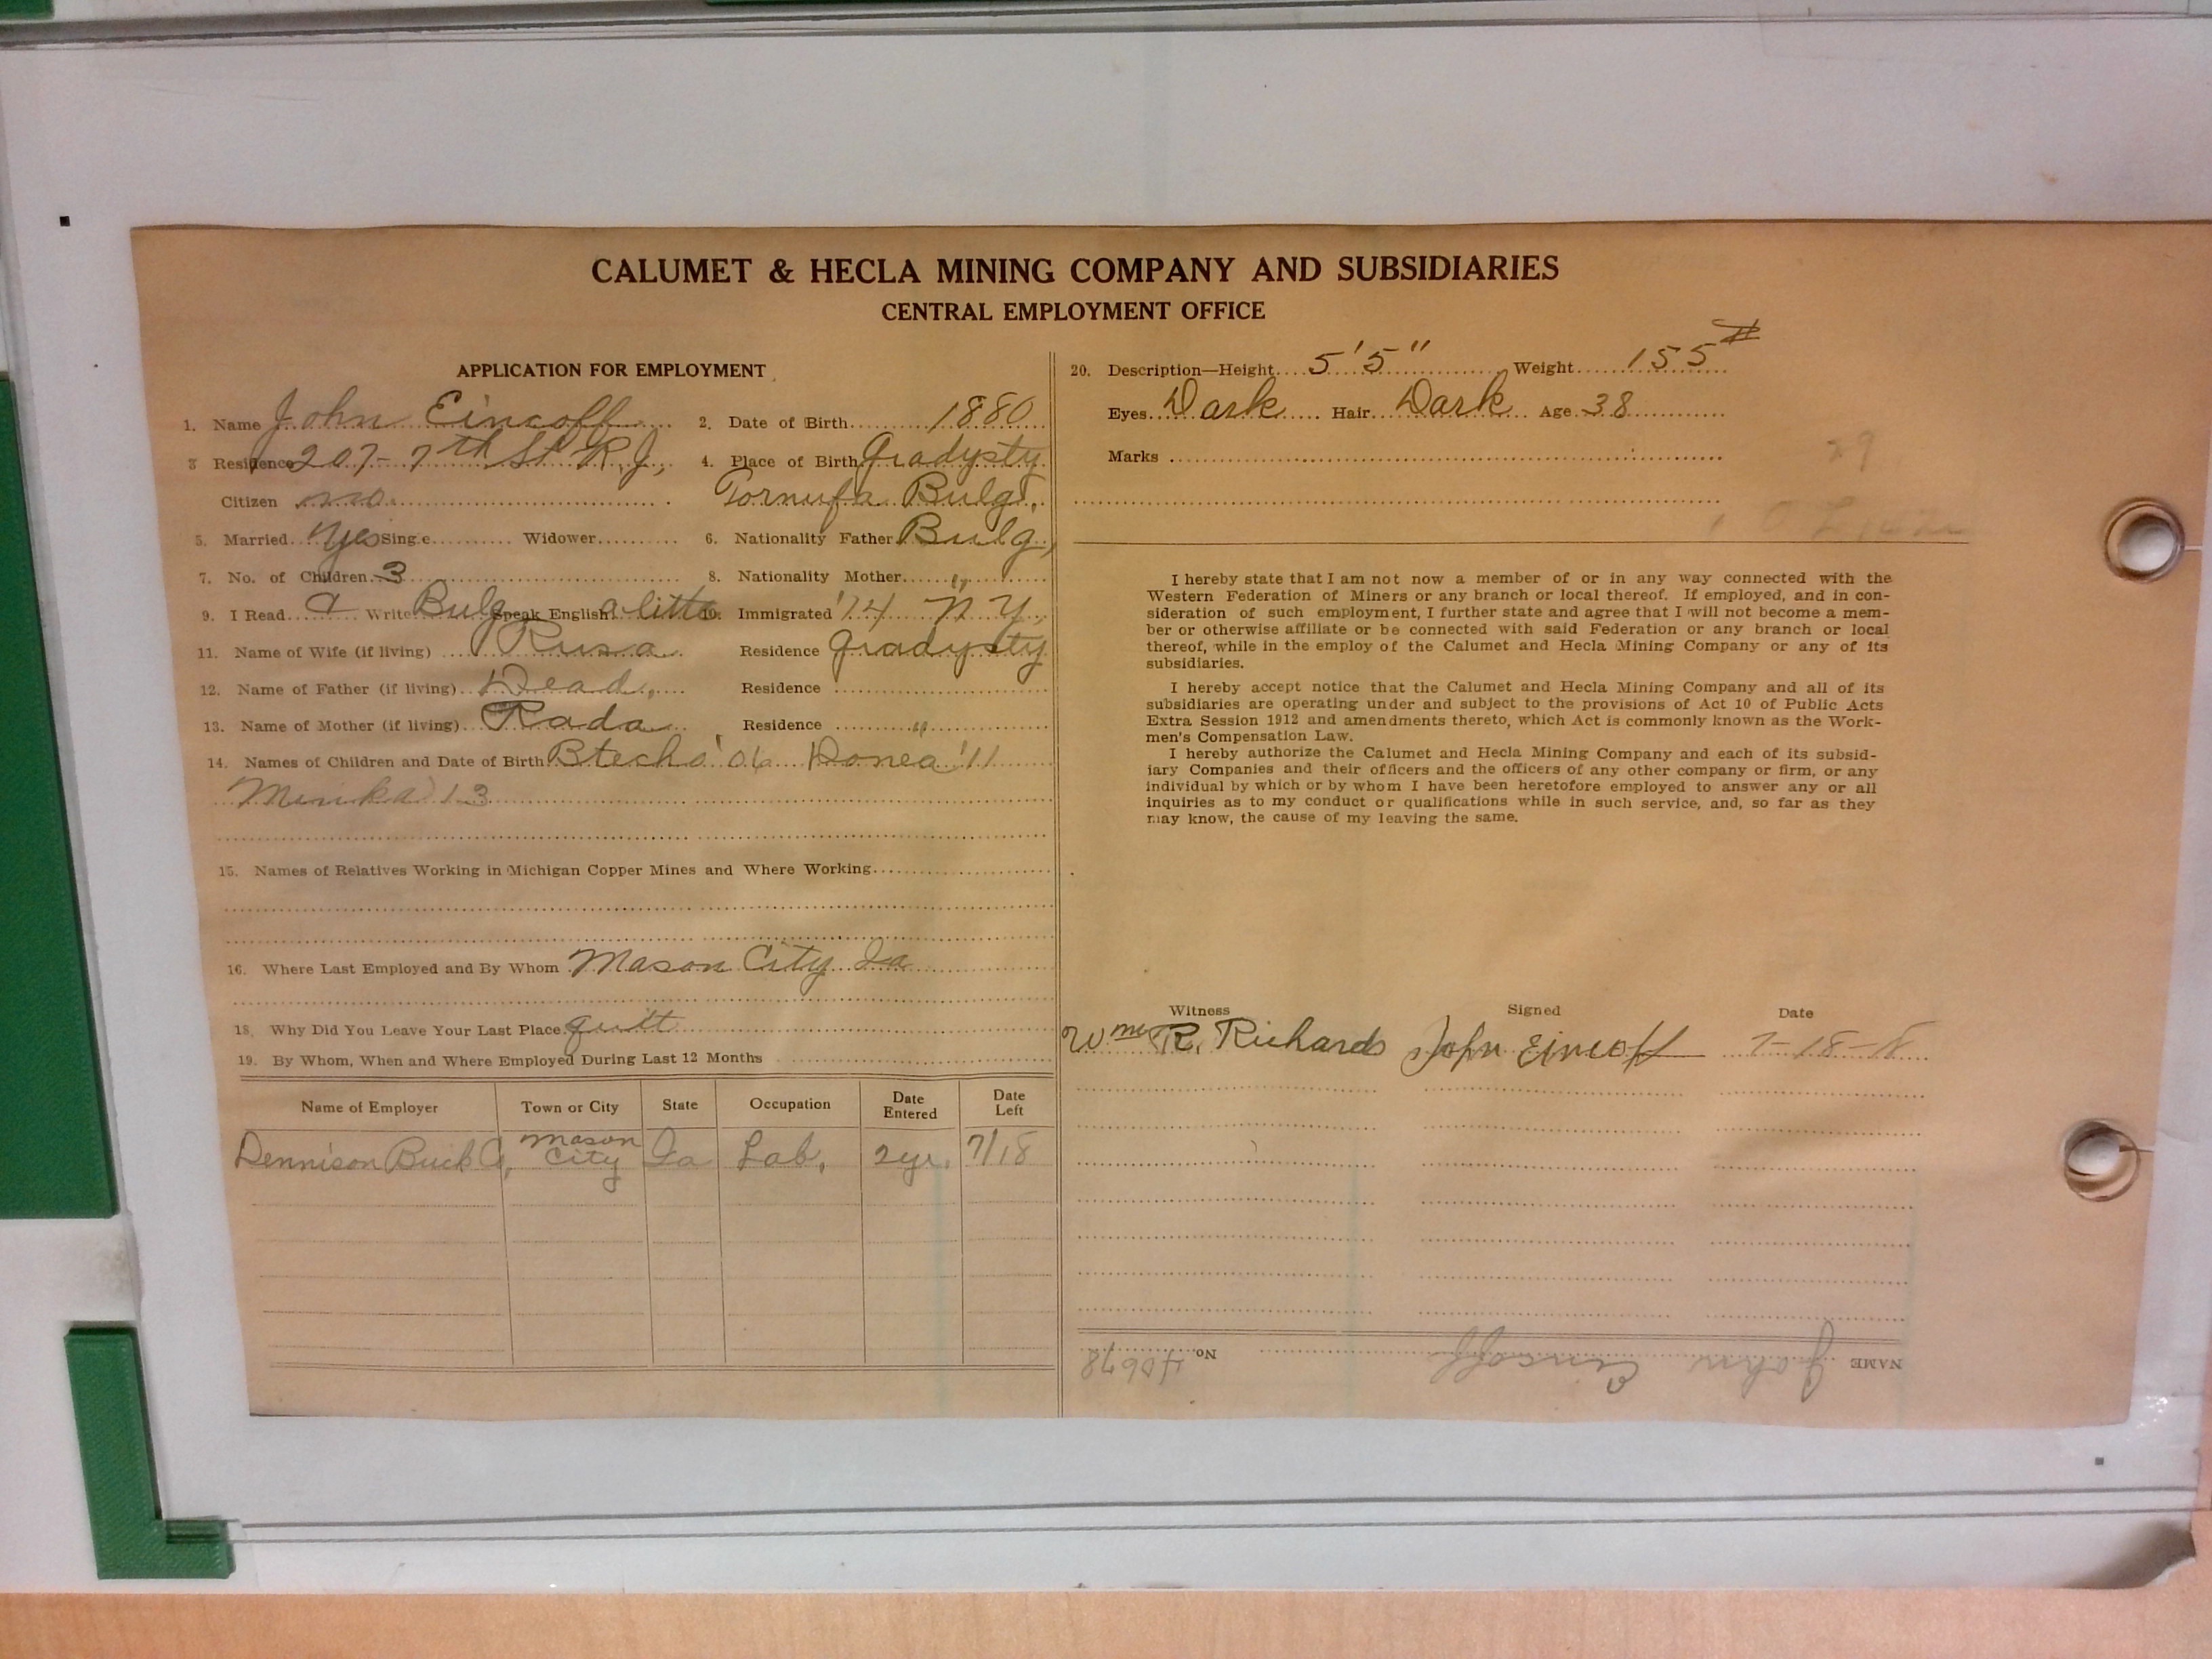 CALUMET & HECLA MINING COMPANY AND SUBSIDIARIES
CENTRAL EMPLOYMENT OFFICE
APPLICATION FOR EMPLOYMENT
1. Name John Eincoff 2. Date of Birth 1880
3 Residence 207-7th St R.J, 4. Place of Birth Gradysty
Citizen no Tornufa Bulg,
5. Married yes Single Widower 6. Nationality Father Bulg,
7. No. of Children 3 8. Nationality Mother "
9. I Read & Write Bulg Speak English a little 10. Immigrated '14 N.Y.
11. Name of Wife (if living) Rusa Residence Gradysty
12. Name of Father (if living) Dead, Residence
13. Name of Mother (if living) Rada Residence "
14. Names of Children and Date of Birth Btecho '06 Donea '11
Minka '13
15. Names of Relatives Working in Michigan Copper Mines and Where Working
16. Where Last Employed and By Whom Mason City Ia
18. Why Did You Leave Your Last Place quit
19. By Whom, When and Where Employed During Last 12 Months
Name of Employer Town or City State Occupation Date Entered Date Left
Dennison Brick Co, Mason City Ia Lab. 2 yr. 7/18
20. Description—Height 5'5" Weight 155#
Eyes Dark Hair Dark Age 38
Marks
29
I hereby state that I am not now a member of or in any way connected with the
Western Federation of Miners or any branch or local thereof. If employed, and in con-
sideration of such employment, I further state and agree that I will not become a mem-
ber or otherwise affiliate or be connected with said Federation or any branch or local
thereof, while in the employ of the Calumet and Hecla Mining Company or any of its
subsidiaries.
I hereby accept notice that the Calumet and Hecla Mining Company and all of its
subsidiaries are operating under and subject to the provisions of Act 10 of Public Acts
Extra Session 1912 and amendments thereto, which Act is commonly known as the Work-
men's Compensation Law.
I hereby authorize the Calumet and Hecla Mining Company and each of its subsid-
iary Companies and their officers and the officers of any other company or firm, or any
individual by which or by whom I have been heretofore employed to answer any or all
inquiries as to my conduct or qualifications while in such service, and, so far as they
may know, the cause of my leaving the same.
Witness Signed Date
Wm R. Richards John Eincoff 7-18-18
NAME John Eincoff No. 40678